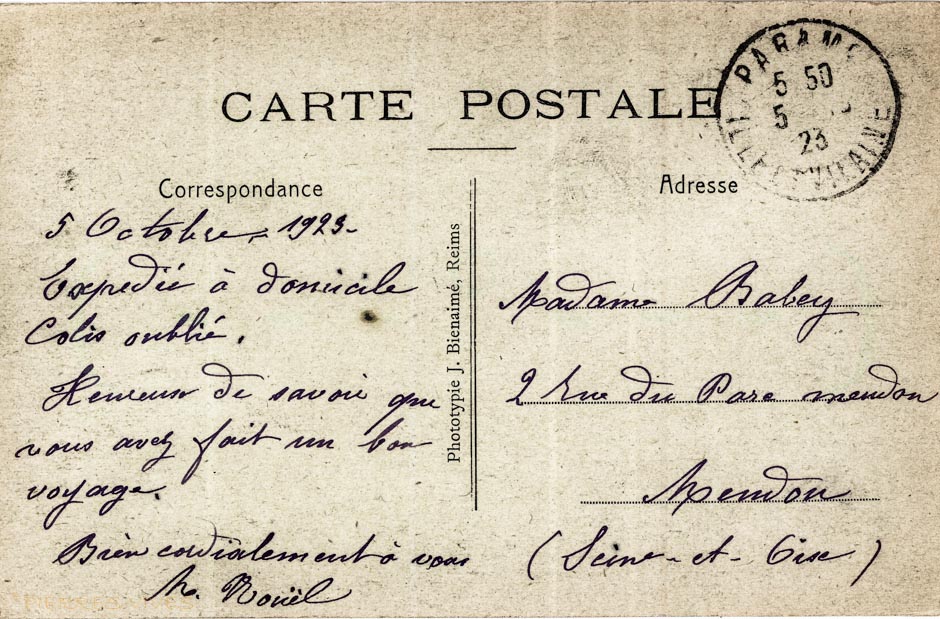 CARTE POSTALE
PARAMÉ
5 50
5
23
ILLE-ET-VILAINE
Correspondance
5 Octobre 1923.
Expedié à domicile
Colis oublié.
Heureux de savoir que
vous avez fait un bon
voyage.
Bien cordialement à vous
Phototypie J. Bienaimé, Reims
Adresse
Madame Babey
2 rue du Parc meudon
Meudon
(Seine-et-Oise)